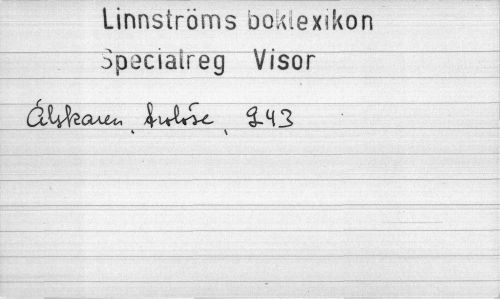 Linnströms boklexikon
Specialreg Visor
Älskaren, trolöse, 243